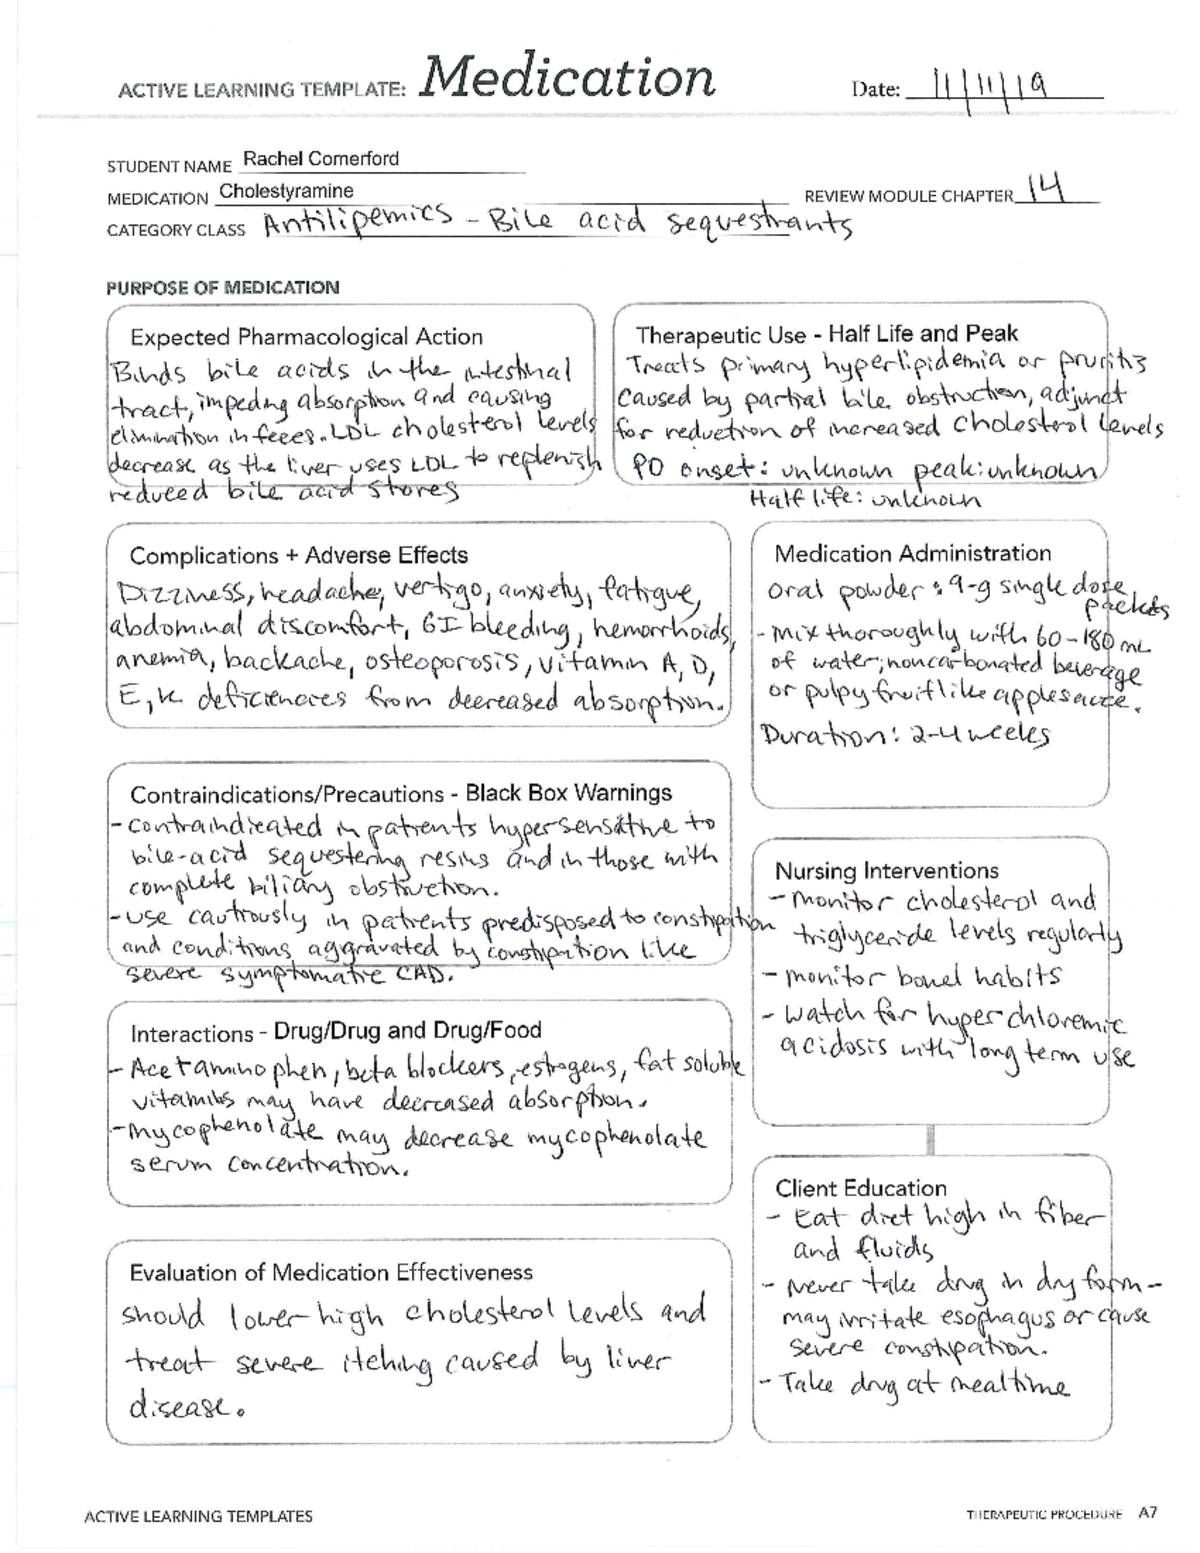 ACTIVE LEARNING TEMPLATE: Medication Date: 11/11/19
STUDENT NAME Rachel Comerford
MEDICATION Cholestyramine REVIEW MODULE CHAPTER 14
CATEGORY CLASS Antilipemics - Bile acid sequestrants
PURPOSE OF MEDICATION
Expected Pharmacological Action
Binds bile acids in the intestinal
tract, impeding absorption and causing
elimination in feces. LDL cholesterol levels
decrease as the liver uses LDL to replenish
reduced bile acid stores
Therapeutic Use - Half Life and Peak
Treats primary hyperlipidemia or pruritis
caused by partial bile obstruction, adjunct
for reduction of increased cholesterol levels
PO onset: unknown peak: unknown
Half life: unknown
Complications + Adverse Effects
Dizziness, headache, vertigo, anxiety, fatigue,
abdominal discomfort, GI bleeding, hemorrhoids,
anemia, backache, osteoporosis, vitamin A, D,
E, K deficiencies from decreased absorption.
Medication Administration
Oral powder: 9-g single dose
packets
- Mix thoroughly with 60-180 mL
of water; noncarbonated beverage
or pulpy fruit like applesauce.
Duration: 2-4 weeks
Contraindications/Precautions - Black Box Warnings
- contraindicated in patients hypersensitive to
bile-acid sequestering resins and in those with
complete biliary obstruction.
- use cautiously in patients predisposed to constipation
and conditions aggravated by constipation like
severe symptomatic CAD.
Nursing Interventions
- Monitor cholesterol and
triglyceride levels regularly
- monitor bowel habits
- Watch for hyperchloremic
acidosis with long term use
Interactions - Drug/Drug and Drug/Food
- Acetaminophen, beta blockers, estrogens, fat soluble
vitamins may have decreased absorption.
- mycophenolate may decrease mycophenolate
serum concentration.
Client Education
- Eat diet high in fiber
and fluids
- Never take drug in dry form -
may irritate esophagus or cause
severe constipation.
- Take drug at mealtime
Evaluation of Medication Effectiveness
should lower high cholesterol levels and
treat severe itching caused by liver
disease.
ACTIVE LEARNING TEMPLATES THERAPEUTIC PROCEDURE A7